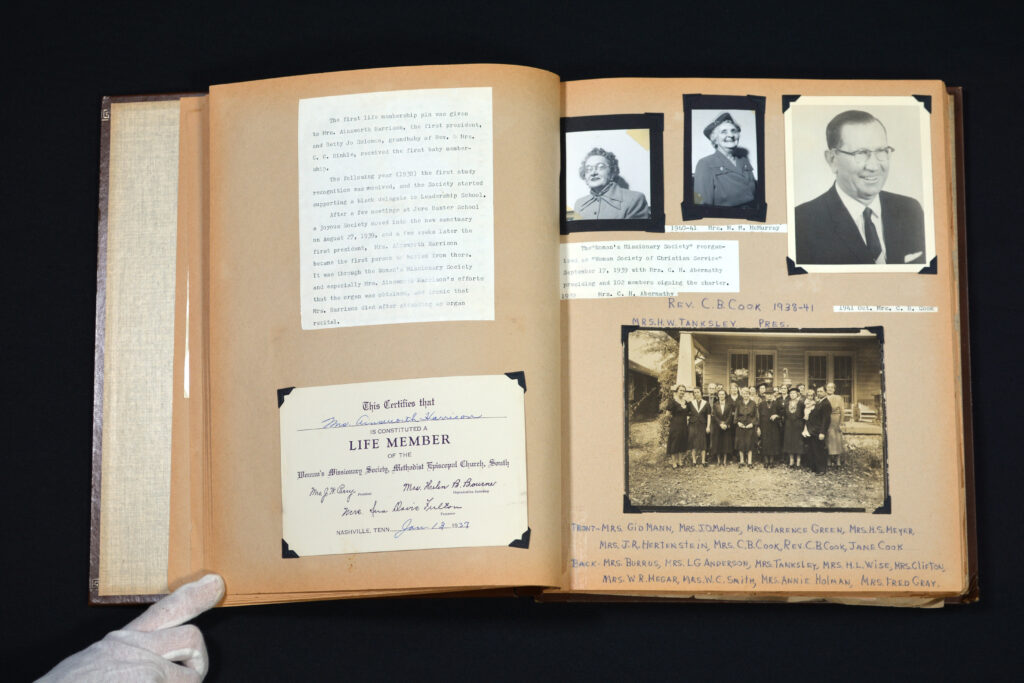 The first life membership pin was given
to Mrs. Ainsworth Harrison, the first president,
and Betty Jo, grandbaby of Rev. & Mrs.
C. C. Hinkle, received the first baby member-
ship.
The following year (1938) the first study
recognition was received, and the Society started
supporting a black delegate to Leadership School.
After a few meetings at Jere Baxter School
a joyous Society moved into the new sanctuary
on August 27, 1939, and a few weeks later the
first president, Mrs. Ainsworth Harrison
became the first person to be from there.
It was through the Women's Missionary Society
and especially Mrs. Ainsworth Harrison's efforts
that the organ was obtained, and ironic that
Mrs. Harrison died after attending an organ
recital.
This Certifies that
Mrs. Ainsworth Harrison
IS CONSTITUTED A
LIFE MEMBER
OF THE
Woman's Missionary Society, Methodist Episcopal Church, South
Mrs. J. W. Perry
President
Mrs. Helen B. Bourne
Secretary
Mrs. Ina Davis Fulton
Treasurer
NASHVILLE, TENN. Jan 13, 1937
1940-41 Mrs. M. M. McMurray
The "Woman's Missionary Society" reorgan-
ized as "Woman Society of Christian Service"
September 17, 1939 with Mrs. C. H. Abernathy
presiding and 102 members signing the charter.
Mrs. C. H. Abernathy
REV. C.B. COOK 1938-41
1941 Oct. Mrs. C. B. Cook
MRS. H.W. TANKSLEY PRES.
FRONT- MRS. GID MANN, MRS. J.O. MALONE, MRS. CLARENCE GREEN, MRS. H.S. MEYER,
MRS. J.R. HERTENSTEIN, MRS. C.B. COOK, REV. C.B. COOK, JANE COOK
BACK- MRS. BURRUS, MRS. L.G ANDERSON, MRS. TANKSLEY, MRS. H.L. WISE, MRS. CLIFTON,
MRS. W.R. HEGAR, MRS. W.C. SMITH, MRS. ANNIE HOLMAN, MRS. FRED GRAY.